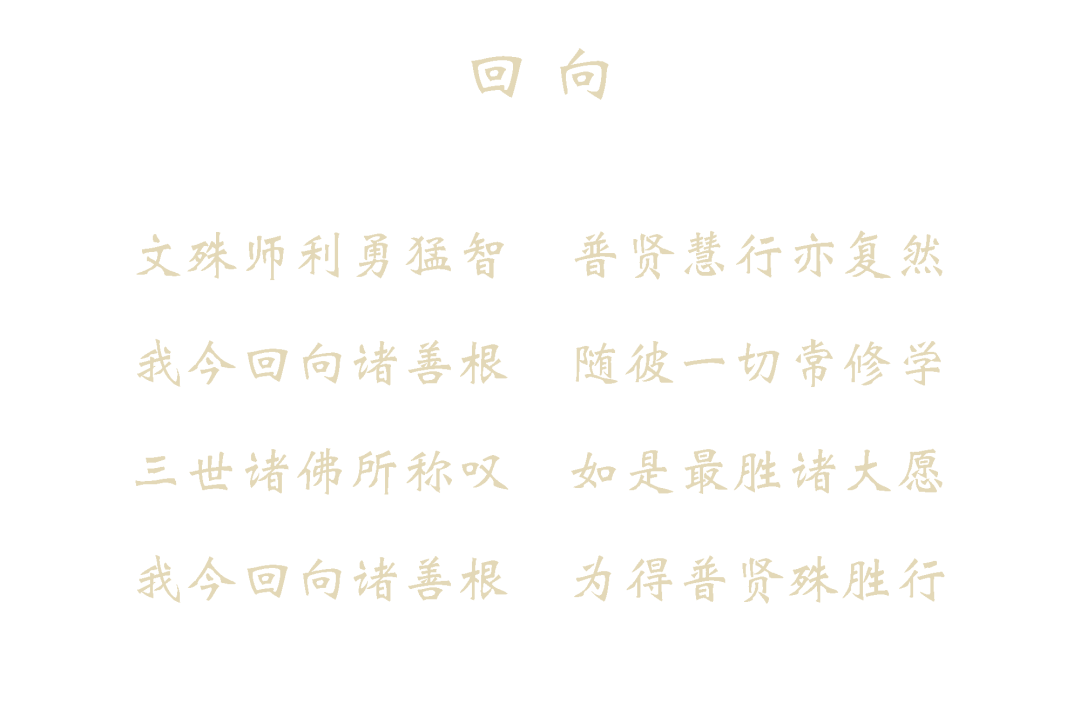 回 向
文殊师利勇猛智 普贤慧行亦复然
我今回向诸善根 随彼一切常修学
三世诸佛所称叹 如是最胜诸大愿
我今回向诸善根 为得普贤殊胜行